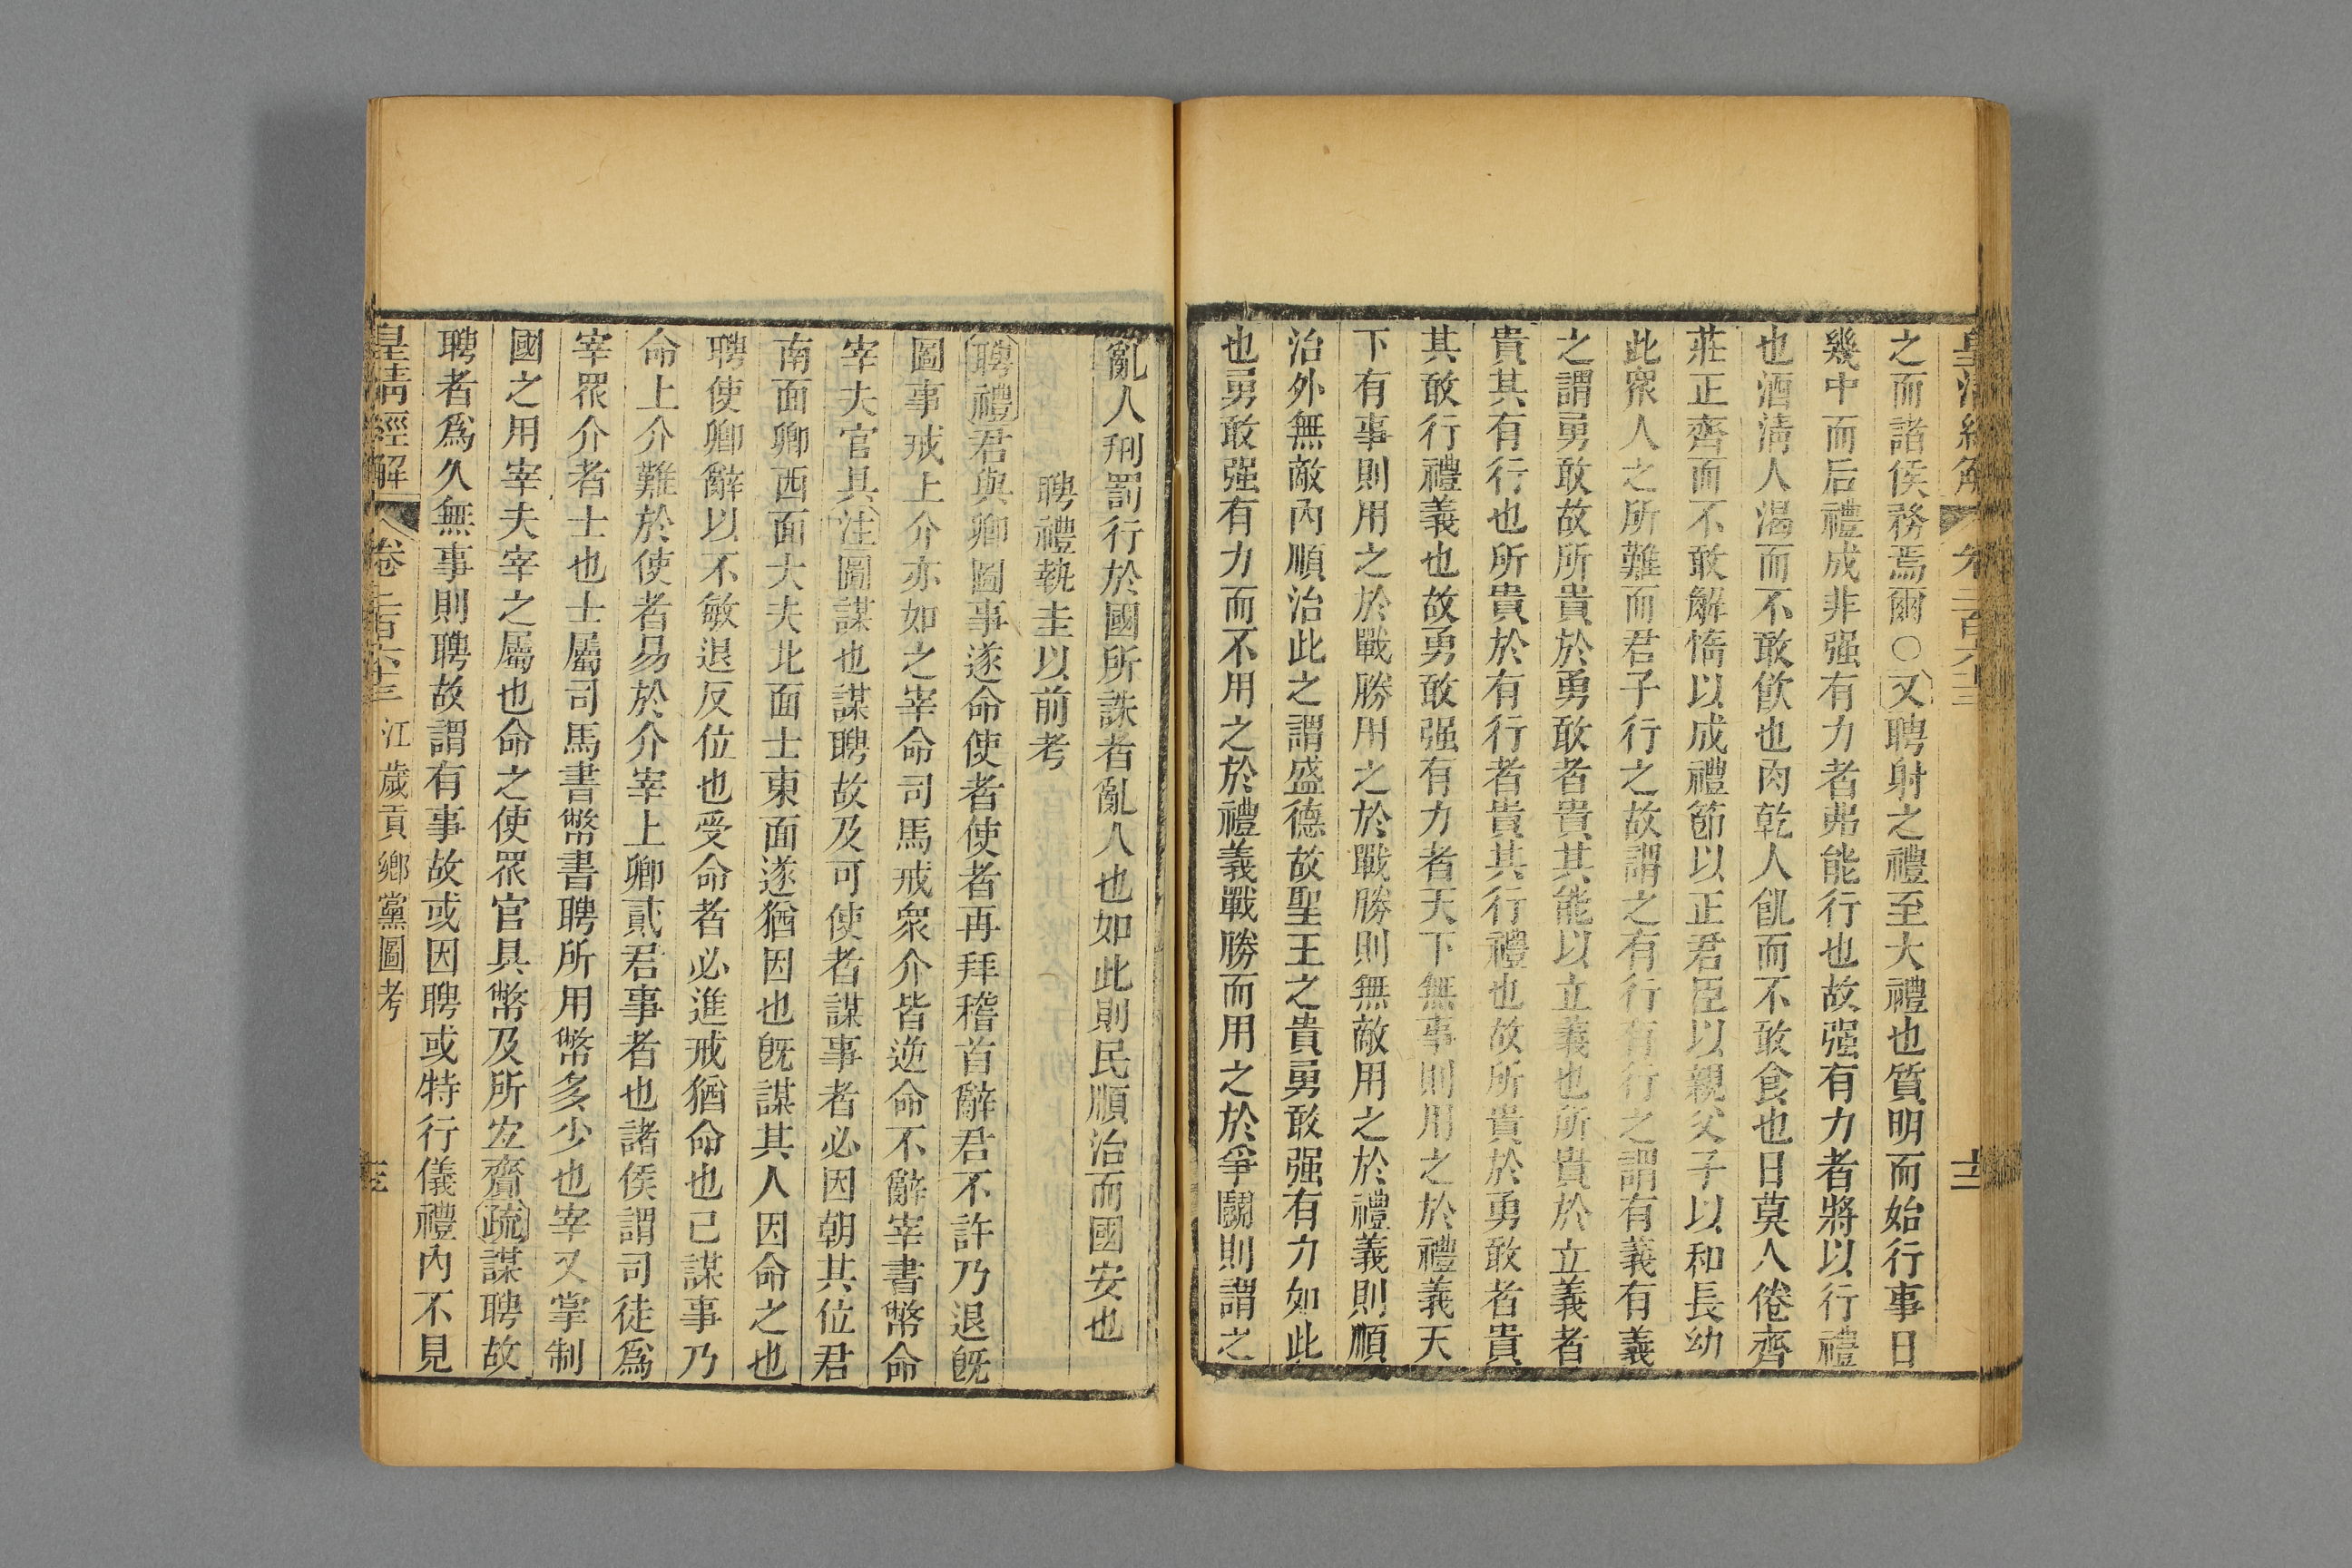 皇清經解 卷二百六十三 十二
之而諸侯務焉爾○又聘射之禮至大禮也質明而始行事日
幾中而后禮成非强有力者弗能行也故强有力者將以行禮
也酒淸人渴而不敢飮也肉乾人飢而不敢食也日莫人倦齊
莊正齊而不敢解惰以成禮節以正君臣以親父子以和長幼
此衆人之所難而君子行之故謂之有行有行之謂有義有義
之謂勇敢故所貴於勇敢者貴其能以立義也所貴於立義者
貴其有行也所貴於有行者貴其行禮也故所貴於勇敢者貴
其敢行禮義也故勇敢强有力者天下無事則用之於禮義天
下有事則用之於戰勝用之於戰勝則無敵用之於禮義則順
治外無敵內順治此之謂盛德故聖王之貴勇敢强有力如此
也勇敢强有力而不用之於禮義戰勝而用之於爭鬭則謂之
亂人刑罰行於國所誅者亂人也如此則民順治而國安也
聘禮執圭以前考
聘禮君與卿圖事遂命使者使者再拜稽首辭君不許乃退旣
圖事戒上介亦如之宰命司馬戒衆介皆逆命不辭宰書幣命
宰夫官具注圖謀也謀聘故及可使者謀事者必因朝其位君
南面卿西面大夫北面士東面遂猶因也旣謀其人因命之也
聘使卿辭以不敏退反位也受命者必進戒猶命也已謀事乃
命上介難於使者易於介宰上卿貳君事者也諸侯謂司徒爲
宰眾介者士也士屬司馬書幣書聘所用幣多少也宰又掌制
國之用宰夫宰之屬也命之使眾官具幣及所宜齎疏謀聘故
聘者爲久無事則聘故謂有事故或因聘或特行儀禮內不見
皇淸經解 卷二百六十三 江歲貢鄉黨圖考 十三